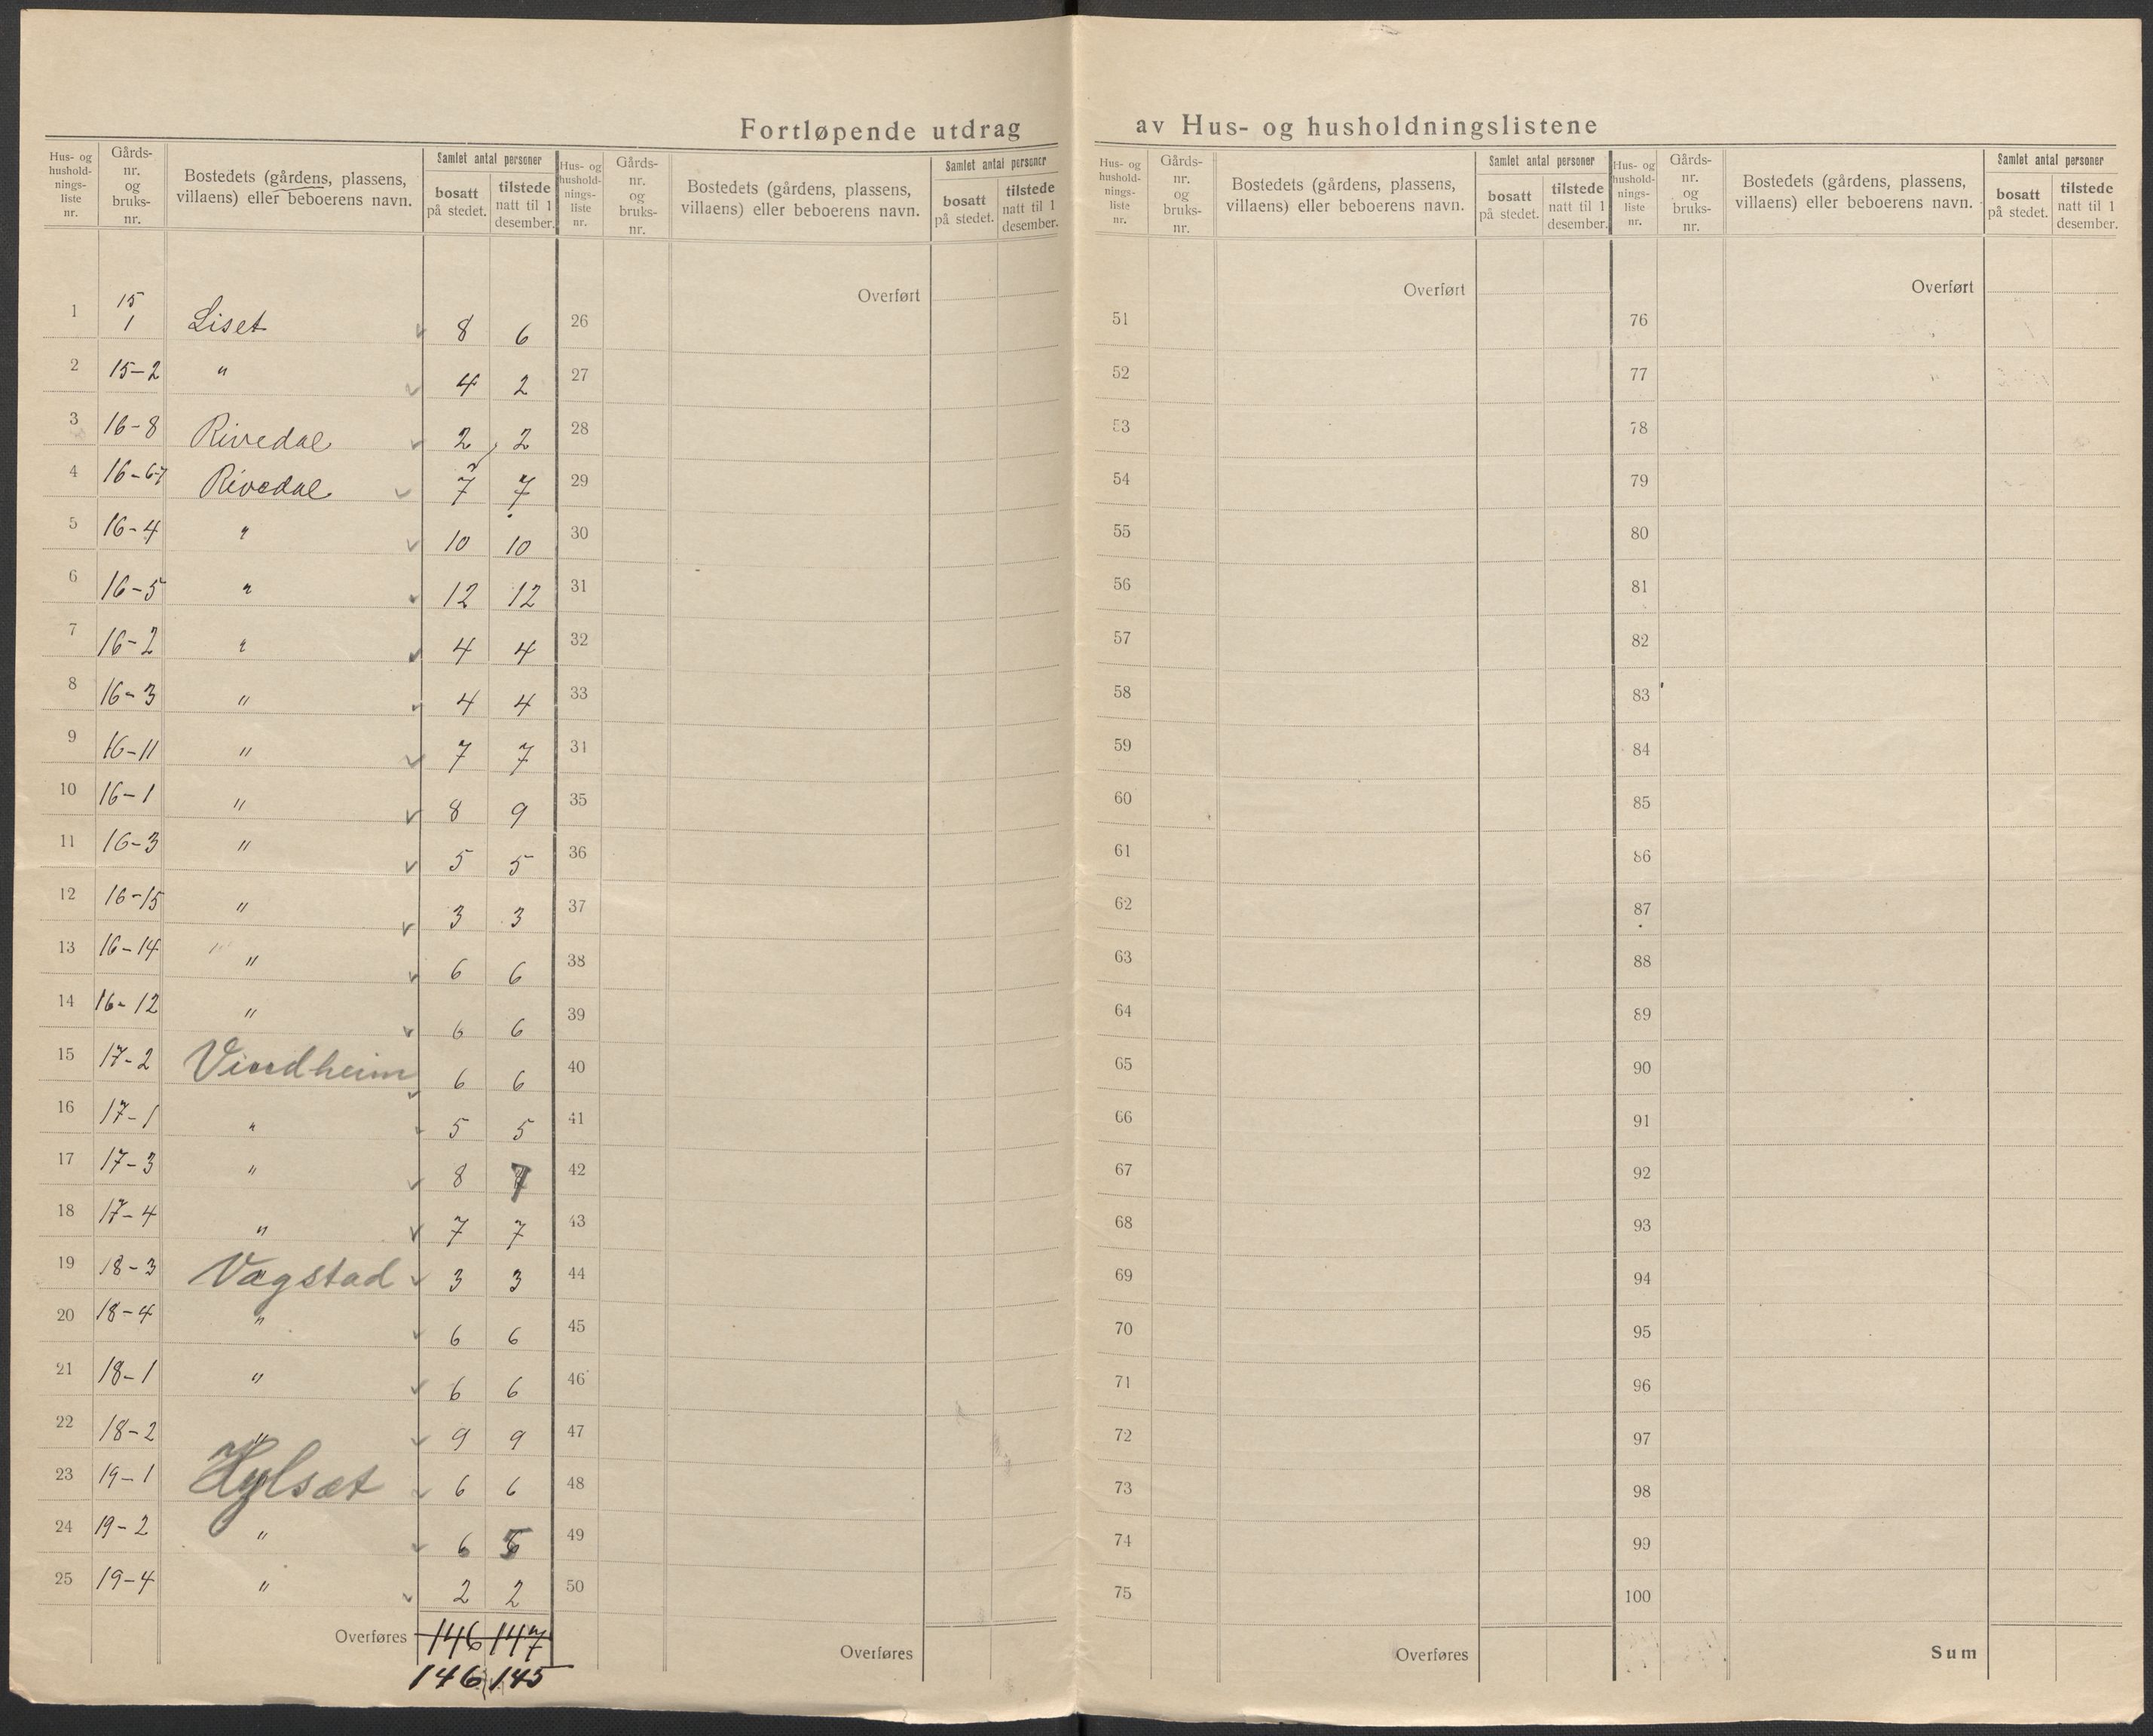 Fortløpende utdrag av Hus- og husholdningslistene
Hus- og hushold-nings-liste nr. Gårds-nr. og bruks-nr. Bostedets (gårdens, plassens, villaens) eller beboerens navn. Samlet antal personer bosatt på stedet. tilstede natt til 1 desember.
1 15 1 Liset 8 6
2 15-2 " 4 2
3 16-8 Rivedal 2 2
4 16-67 Rivedal 7 7
5 16-4 " 10 10
6 16-5 " 12 12
7 16-2 " 4 4
8 16-3 " 4 4
9 16-11 " 7 7
10 16-1 " 8 9
11 16-3 " 5 5
12 16-15 " 3 3
13 16-14 " 6 6
14 16-12 " 6 6
15 17-2 Vindheim 6 6
16 17-1 " 5 5
17 17-3 " 8 7
18 17-4 " 7 7
19 18-3 Vagstad 3 3
20 18-4 " 6 6
21 18-1 " 6 6
22 18-2 " 9 9
23 19-1 Hylsæt 6 6
24 19-2 " 6 5
25 19-4 " 2 2
Overføres 146 147
146 145
Hus- og hushold-nings-liste nr. Gårds-nr. og bruks-nr. Bostedets (gårdens, plassens, villaens) eller beboerens navn. Samlet antal personer bosatt på stedet. tilstede natt til 1 desember.
Overført
26
27
28
29
30
31
32
33
31
35
36
37
38
39
40
41
42
43
44
45
46
47
48
49
50
Overføres
Hus- og hushold-nings-liste nr. Gårds-nr. og bruks-nr. Bostedets (gårdens, plassens, villaens) eller beboerens navn. Samlet antal personer bosatt på stedet. tilstede natt til 1 desember.
Overført
51
52
53
54
55
56
57
58
59
60
61
62
63
64
65
66
67
68
69
70
71
72
73
74
75
Overføres
Hus- og hushold-nings-liste nr. Gårds-nr. og bruks-nr. Bostedets (gårdens, plassens, villaens) eller beboerens navn. Samlet antal personer bosatt på stedet. tilstede natt til 1 desember.
Overført
76
77
78
79
80
81
82
83
84
85
86
87
88
89
90
91
92
93
94
95
96
97
98
99
100
Sum